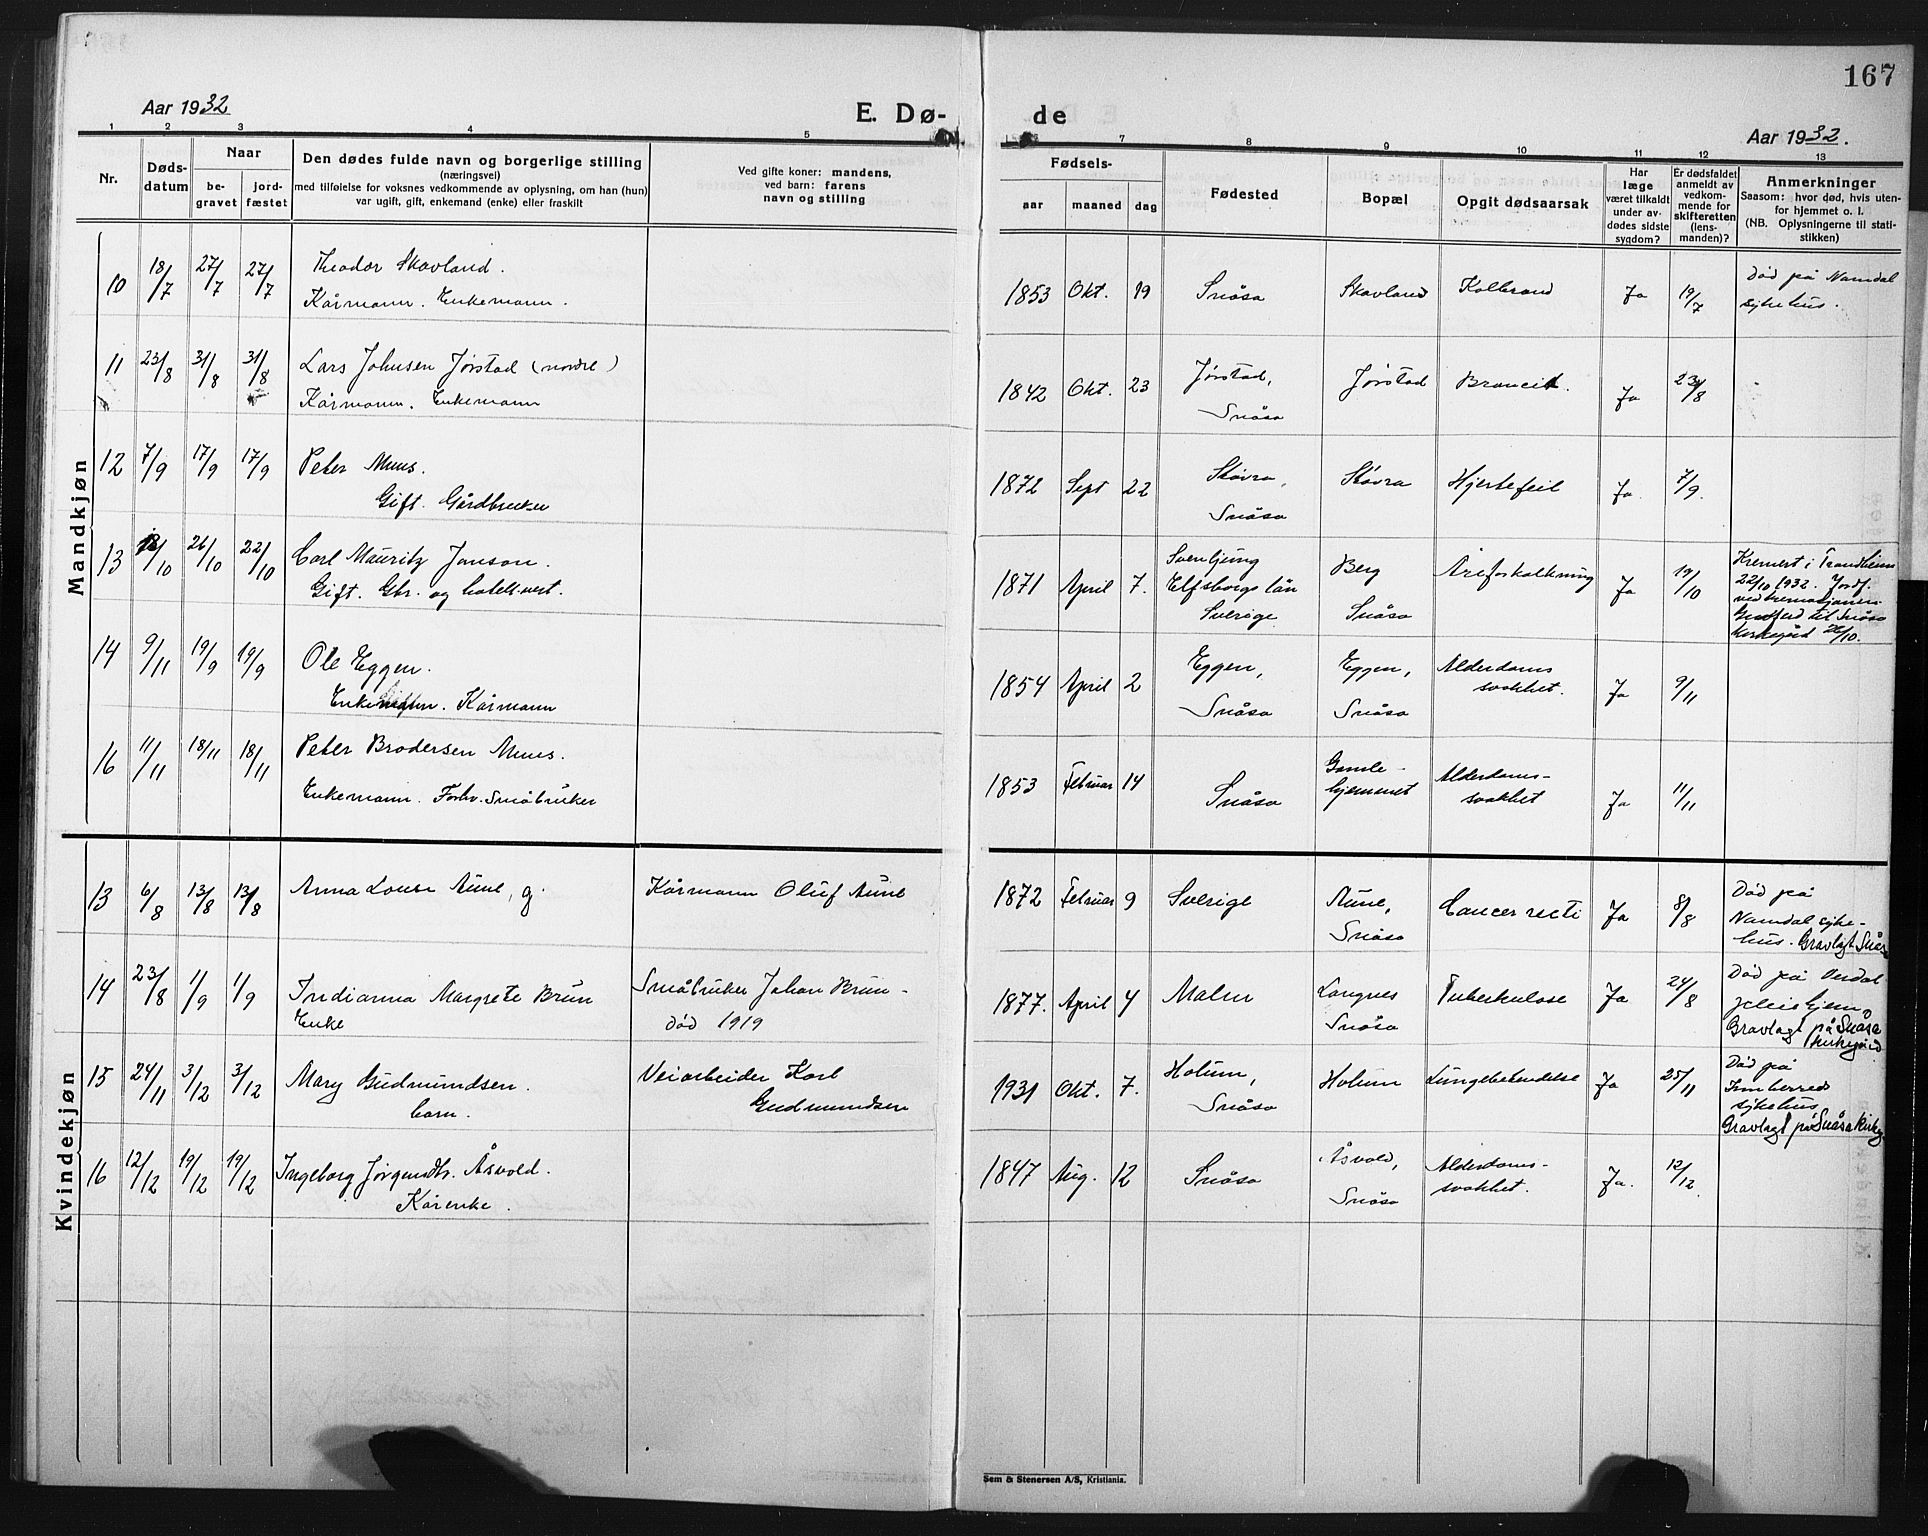 167
Aar 1932
E. Dø-
de
Aar 1932.
1 2 3 4 5
7 8 9 10 11 12 13
Nr.
Døds-
datum
Naar
be-
gravet
jord-
fæstet
Den dødes fulde navn og borgerlige stilling
(næringsvei)
med tilføielse for voksnes vedkommende av oplysning, om han (hun)
var ugift, gift, enkemand (enke) eller fraskilt
Ved gifte koner: mandens,
ved barn: farens
navn og stilling
Fødsels-
aar
maaned
dag
Fødested
Bopæl
Opgit dødsaarsak
Har
læge
været tilkaldt
under av-
dødes sidste
sygdom?
Er dødsfaldet
anmeldt av
vedkom-
mende for
skifteretten
(lens-
manden)?
Anmerkninger
Saasom: hvor død, hvis uten-
for hjemmet o. l.
(NB. Oplysningerne til stati-
stikken)
Mandkjøn
10 18/7 27/7 27/7 Theodor Skavland.
Kårmann. Enkemann.
1853 Okt. 19 Snåsa Skavland Kolbrand Ja 19/7
Død på Namdal
sykehus.
11 23/8 31/8 31/8 Lars Johnsen Jørstad (nordre)
Kårmann. Enkemann
1842 Okt. 23 Jørstad,
Snåsa
Jørstad Ja 23/8
12 7/9 17/9 17/9 Peter Muus.
Gift. Gårdbruker
1872 Sept 22 Støvra,
Snåsa
Støvra Hjertefeil Ja. 7/9.
13 /10 26/10 22/10 Carl Mauritz Janson.
Gift. Gbr. og hotellvert.
1871 April 7. Svenljung
Elfsborgs län
Sverige
Berg
Snåsa
Åreforkalkning Ja 19/10
Kremert i Trondheim
22/10 1932. Jordf.
ved kremasjonen
til Snåsa
kirkegård 26/10.
14 9/11 19/9 19/9 Ole Eggen.
Kårmann
1854 April 2 Eggen,
Snåsa
Eggen,
Snåsa
Alderdoms
svakhet. Ja 9/11
16 11/11 18/11 18/11 Peter Brodersen Muus.
Enkemann. Forhv. Småbruker
1853 Februar 14 Snåsa
Gamle-
hjemmet
Alderdoms-
svakhet Ja 11/11
Kvindekjøn
13 6/8 13/8 13/8 Anna Louise Aune, g.
Kårmann Oluf Aune
1872 Februar 9 Sverige
Aune,
Snåsa
Cancer recti Ja 8/8
Død på
Namdal syke-
hus. Gravlagt Snås
14 23/8 1/9 1/9 Indianna Margrete Brun
Enke
Småbruker Johan Brun -
død 1919
1877. April 4 Malm
Langnes
Snåsa
Tuberkulose Ja 24/8
Død på Verdal
pleiehjem
Gravlagt på Snåsa
kirkegård
15 24/11 3/12 3/12 Mary Gudmundsen.
barn.
Veiarbeider Karl
Gudmundsen
1931 Okt. 7. Holum,
Snåsa
Holum Lungebetendelse Ja 25/11
Død på
Innherred
sykehus
Gravlagt på Snåsa kirkeg
16 12/12 19/12 19/12 Ingeborg Jørgensdtr. Åsvold.
Kårenke.
1847 Aug. 12 Snåsa
Åsvold,
Snåsa
Alderdoms-
svakhet. Ja. 12/12
Sem & Stenersen A/S, Kristiania.